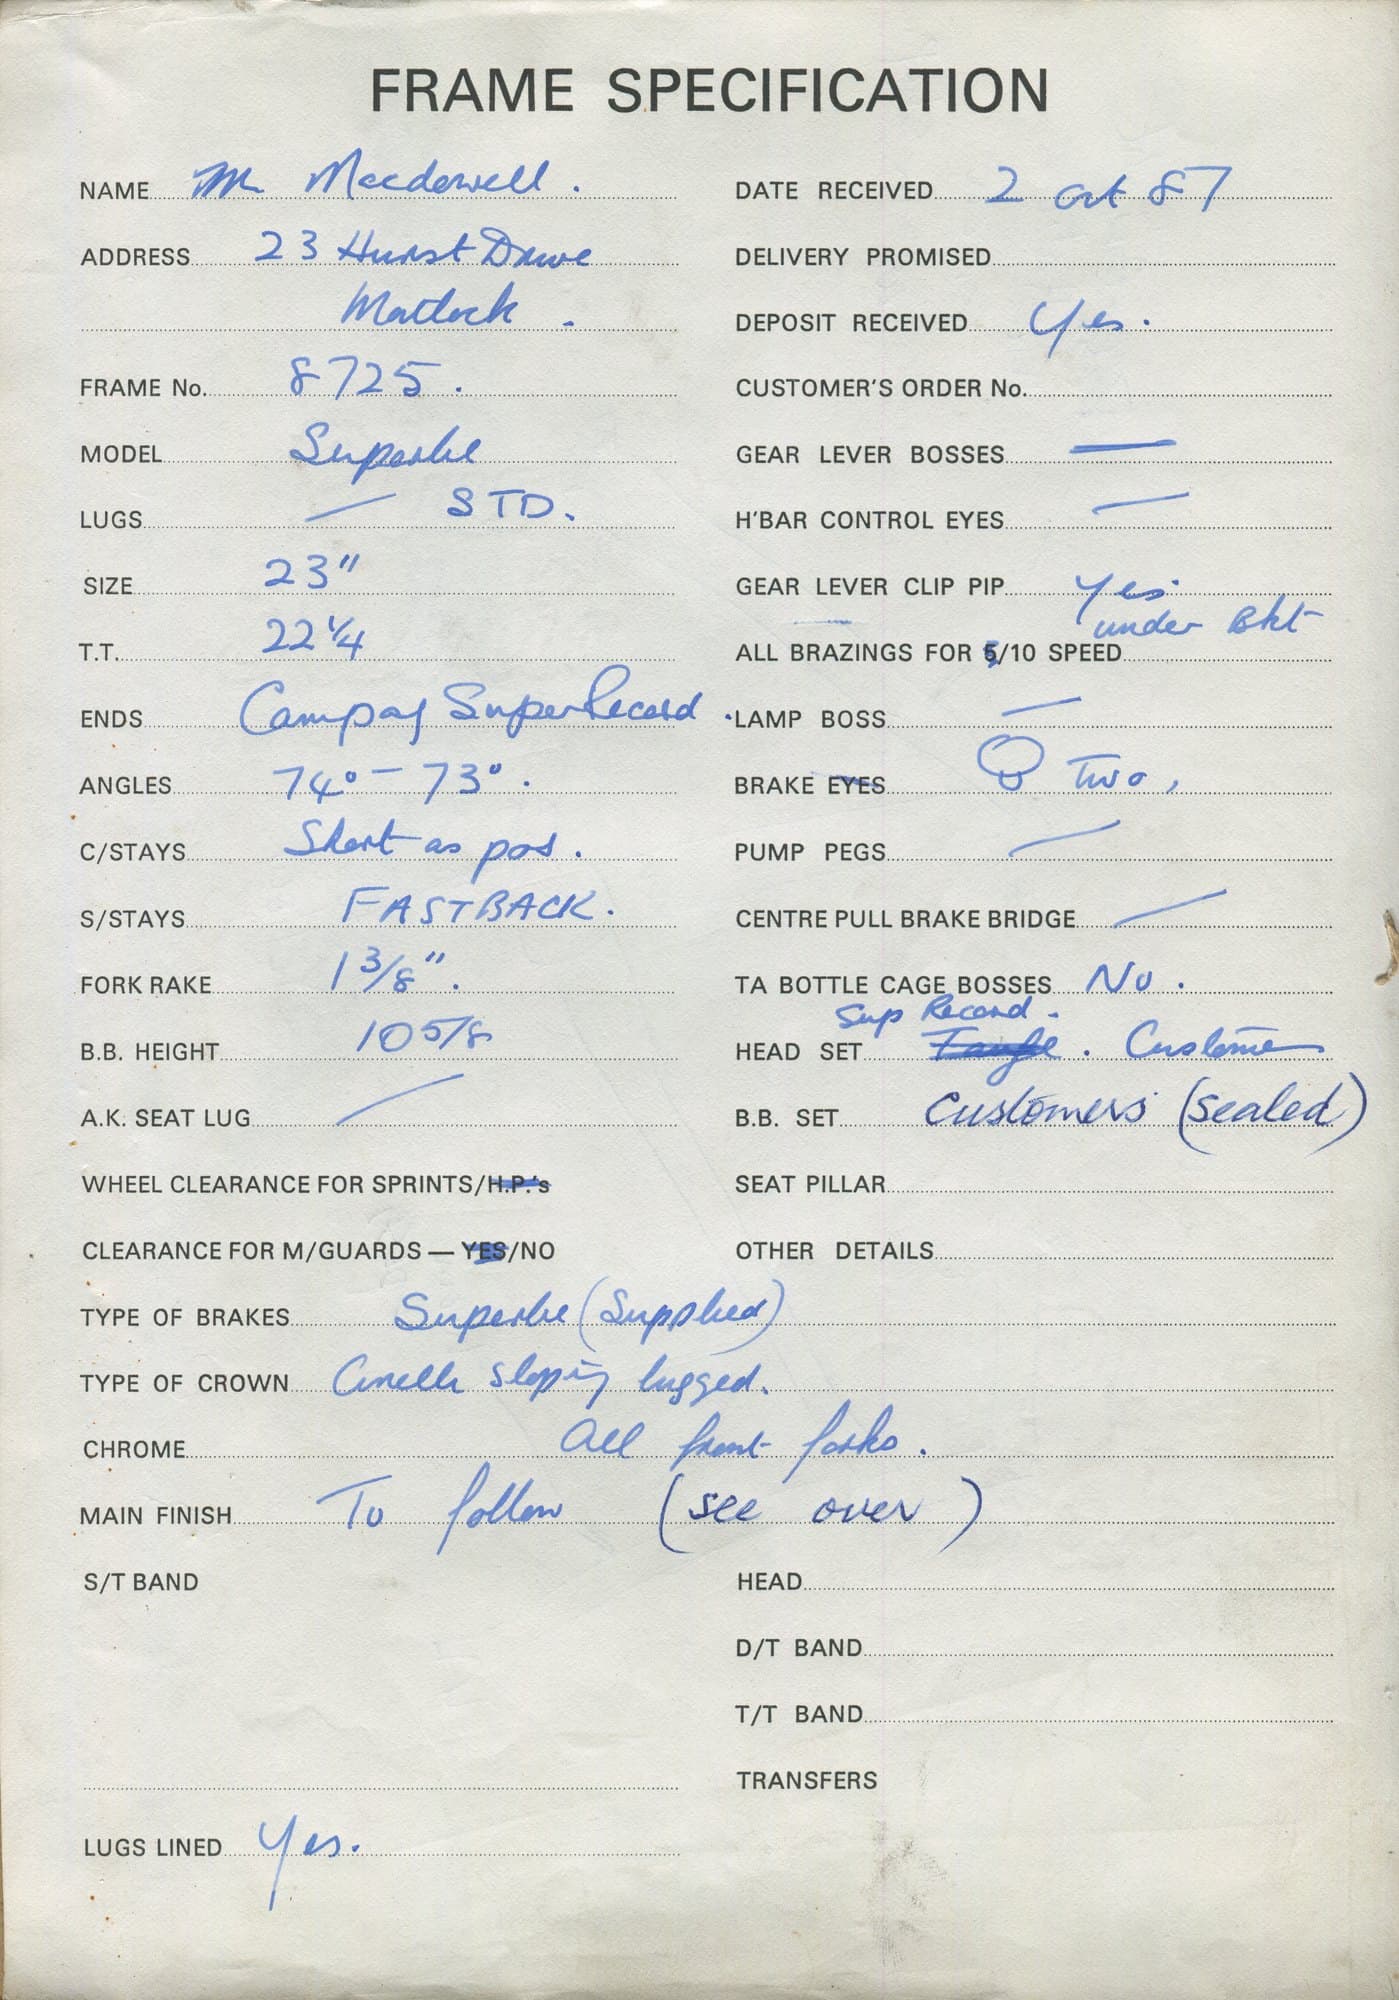 FRAME SPECIFICATION
NAME Mr Macdowell.
ADDRESS 23 Hurst Drive
Matlock.
FRAME No. 8725.
MODEL Superbe
LUGS — STD.
SIZE 23"
T.T. 22 1/4
ENDS Campag Super Record.
ANGLES 74° - 73°.
C/STAYS Short as pos.
S/STAYS FASTBACK.
FORK RAKE 1 3/8".
B.B. HEIGHT 10 5/8
A.K. SEAT LUG —
WHEEL CLEARANCE FOR SPRINTS/H.P.'s
CLEARANCE FOR M/GUARDS — YES/NO
DATE RECEIVED 2 Oct 87
DELIVERY PROMISED
DEPOSIT RECEIVED Yes.
CUSTOMER'S ORDER No.
GEAR LEVER BOSSES —
H'BAR CONTROL EYES —
GEAR LEVER CLIP PIP Yes.
under Bkt
ALL BRAZINGS FOR 5/10 SPEED
LAMP BOSS —
BRAKE EYES Two,
PUMP PEGS —
CENTRE PULL BRAKE BRIDGE —
TA BOTTLE CAGE BOSSES No.
Sup Record.
HEAD SET . Customer
B.B. SET customers (sealed)
SEAT PILLAR
OTHER DETAILS
TYPE OF BRAKES Superbe (Supplied)
TYPE OF CROWN Cinelli sloping lugged.
CHROME All front forks.
MAIN FINISH To follow (see over)
S/T BAND
LUGS LINED Yes.
HEAD
D/T BAND
T/T BAND
TRANSFERS